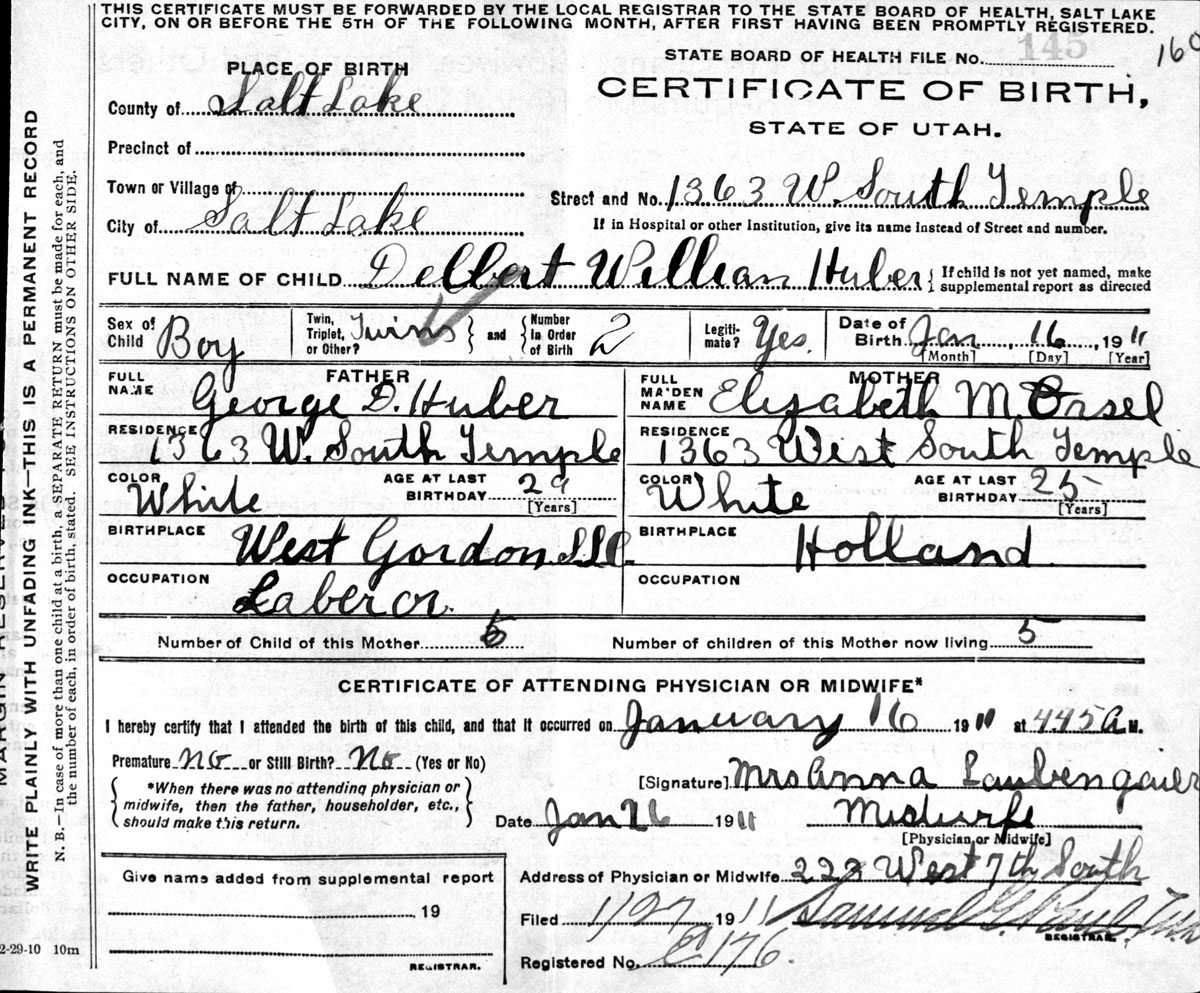 THIS CERTIFICATE MUST BE FORWARDED BY THE LOCAL REGISTRAR TO THE STATE BOARD OF HEALTH, SALT LAKE
CITY, ON OR BEFORE THE 5TH OF THE FOLLOWING MONTH, AFTER FIRST HAVING BEEN PROMPTLY REGISTERED.
STATE BOARD OF HEALTH FILE No. 145 160
PLACE OF BIRTH
CERTIFICATE OF BIRTH,
County of Salt Lake
STATE OF UTAH.
Precinct of
Town or Village of
Street and No. 1363 W. South Temple
City of Salt Lake
If in Hospital or other Institution, give its name Instead of Street and number.
FULL NAME OF CHILD Delbert William Huber { If child is not yet named, make
supplemental report as directed
Sex of Child Boy Twin, Triplet, or Other? Twins } and { Number In Order of Birth 2 Legiti- mate? Yes. Date of Birth Jan, 16, 1911
[Month] [Day] [Year]
FATHER
FULL NAME George D. Huber
RESIDENCE
1363 W. South Temple
COLOR White AGE AT LAST BIRTHDAY 29 [Years]
BIRTHPLACE West Gordon
OCCUPATION
MOTHER
FULL MAIDEN NAME Elizabeth M.
RESIDENCE
1363 West South Temple
COLOR White AGE AT LAST BIRTHDAY 25 [Years]
BIRTHPLACE Holland
OCCUPATION
Number of Child of this Mother
Number of children of this Mother now living 5
CERTIFICATE OF ATTENDING PHYSICIAN OR MIDWIFE*
I hereby certify that I attended the birth of this child, and that it occurred on January 16 1911 at 445 A M.
Premature No or Still Birth? No (Yes or No)
{ *When there was no attending physician or
midwife, then the father, householder, etc.,
should make this return. }
[Signature] Mrs Anna Laubengaier
Date Jan 1911 Midwife
[Physician or Midwife]
Address of Physician or Midwife 223 West 7th South
Give name added from supplemental report
19
REGISTRAR.
Filed 1/27 1911 Samuel G. Paul
REGISTRAR.
Registered No. 176.
2-29-10 10m
WRITE PLAINLY WITH UNFADING INK—THIS IS A PERMANENT RECORD
N. B.—In case of more than one child at a birth, a SEPARATE RETURN must be made for each, and
the number of each, in order of birth, stated. SEE INSTRUCTIONS ON OTHER SIDE.